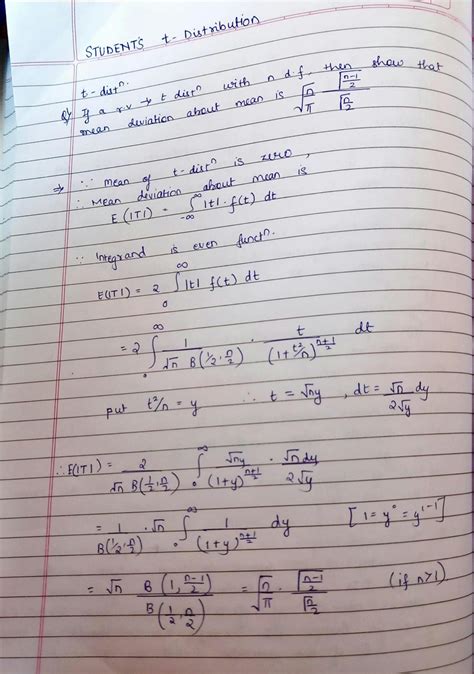 STUDENTS t-Distribution
t-distⁿ.
Q) If a r.v → t distⁿ with n d.f, then show that
mean deviation about mean is √n/√π · Γ(n-1)/2 / Γn/2
⇒ ∵ mean of t-distⁿ is zero,
∴ Mean deviation about mean is
E(|T|) = ∫_{-∞}^{∞} |t|. f(t) dt
∵ Integrand is even functⁿ.
E(|T|) = 2 ∫_0^∞ |t| f(t) dt
= 2 ∫_0^∞ 1/(√n B(1/2, n/2)) · t/(1+t²/n)^{(n+1)/2} dt
put t²/n = y ∴ t = √ny , dt = √n/(2√y) dy
∴ E(|T|) = 2/(√n B(1/2, n/2)) ∫_0^∞ √ny/(1+y)^{(n+1)/2} · √n dy/(2√y)
= 1/B(1/2, n/2) · √n ∫_0^∞ 1/(1+y)^{(n+1)/2} dy [1 = y⁰ = y^{1-1}]
= √n B(1, (n-1)/2) / B(1/2, n/2) = √n/√π · Γ(n-1)/2 / Γn/2 (if n>1)